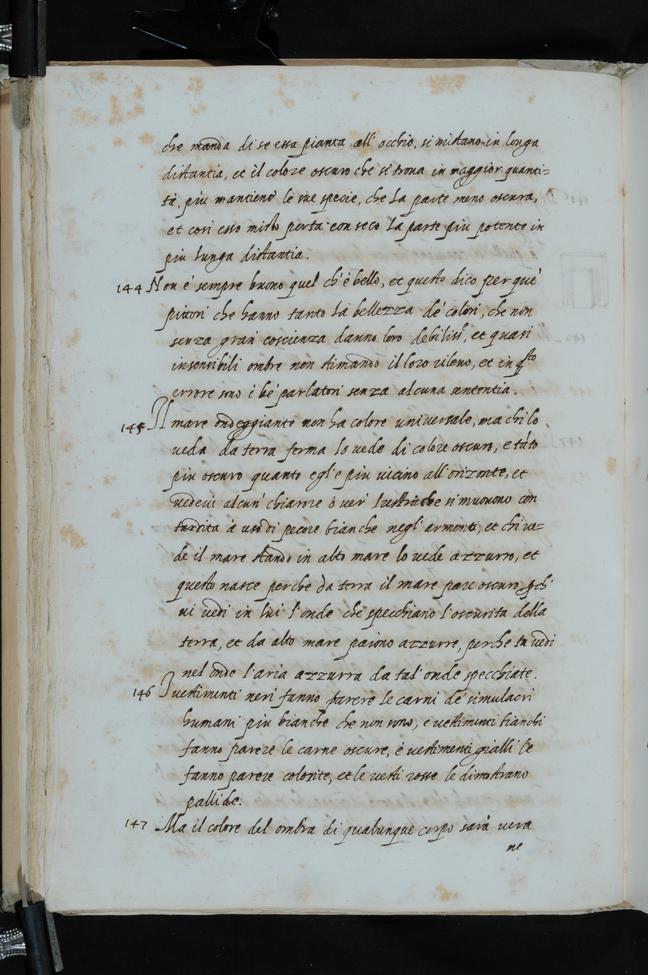 che manda di se essa pianta all' occhio, si mistano in longa
distantia, et il colore oscuro che si trova in maggior quanti=
tà, più mantiene le sue specie, che la parte meno oscura,
et così esso misto porta con seco la parte più potente in
più lunga distantia.
144 Non è sempre buono quel ch'è bello, et questo dico per què
pittori che hanno tanto la bellezza de' colori, che non
senza gran coscienza danno loro debiliss.e et quasi
insensibili ombre non stimando il loro rilevo, et in q.sto
errore sono i bè parlatori senza alcuna sententia.
145 Il mare ondeggiante non ha colore universale, ma chi lo
veda da terra ferma lo vede di colore oscuro, e tàto
più oscuro quanto egl'è più vicino all' orizonte, et
vedevi alcun' chiarore ò ver' lustri che si muovono con
tardità à uso di pecore bianche negl' armenti, et chi ve=
de il mare stando in alto mare lo vede azzurro, et
questo nasce perche da terra il mare pare oscuro p ch'
vi vedi in lui l'onde che specchiano l'oscurità della
terra, et da alto mare paiono azzurre, perche tu vedi
nel onde l'aria azzurra da tal' onde specchiate.
146 I vestimenti neri fanno parere le carni de' simulacri
humani più bianche che non sono, e vestimenti bianchi
fanno parere le carne oscure, è vestimenti gialli le
fanno parere colorite, et le vesti rosse le dimostrano
pallide.
147 Ma il colore del ombra di qualunque corpo sarà vera
ne